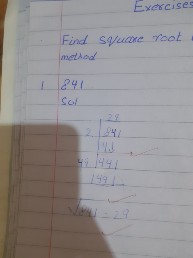 Exercises
Find square root
method
1 841
Sol
29
2 841
4↓
49 441
441
√841 = 29